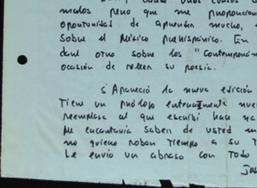 medios pero que me proporcionan
oportunidad de aprender mucho,
sobre el México prehispánico. En
otro sobre los "Contemporáneos
ocasión de releer su poesía.
¿Apareció la nueva edición
Tiene un prólogo enteramente nue
reemplaza al que escribí hace ya
Me encantaría saber de usted
no quiero robar tiempo a su t
Le envío un abrazo con todo